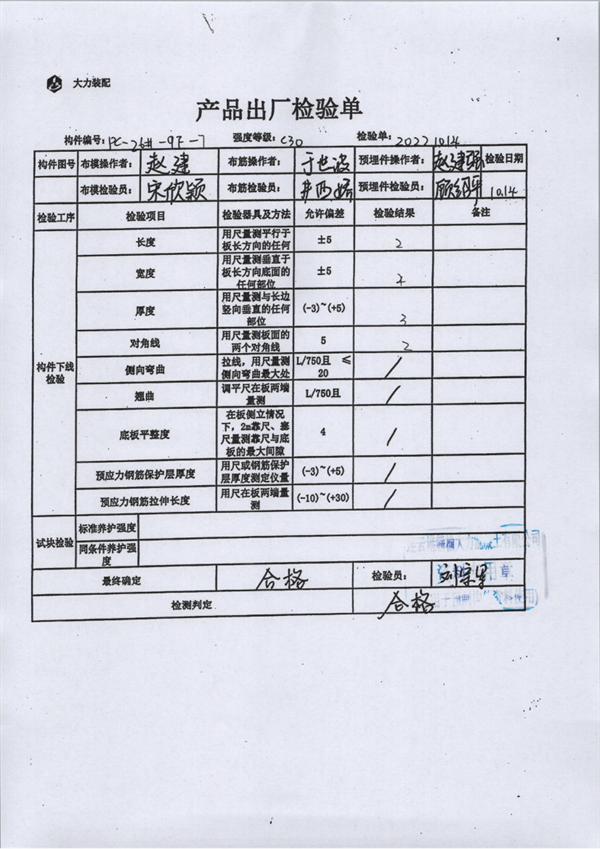 大力装配
产品出厂检验单
构件编号: PC-26#-9F-7 强度等级: C30 检验单: 20221014
构件图号 布模操作者: 赵建 布筋操作者: 于世波 预埋件操作者: 赵建强 检验日期
布模检验员: 宋欣颖 布筋检验员: 预埋件检验员: 10.14
检验工序 检验项目 检验器具及方法 允许偏差 检验结果 备注
构件下线检验
长度 用尺量测平行于板长方向的任何 ±5 2
宽度 用尺量测垂直于板长方向底面的任何部位 ±5
厚度 用尺量测与长边竖向垂直的任何部位 (-3)~(+5) 3
对角线 用尺量测板面的两个对角线 5 2
侧向弯曲 拉线，用尺量测侧向弯曲最大处 L/750且 ≤20 /
翘曲 调平尺在板两端量测 L/750且 /
底板平整度 在板侧立情况下，2m靠尺、塞尺量测靠尺与底板的最大间隙 4 /
预应力钢筋保护层厚度 用尺或钢筋保护层厚度测定仪量 (-3)~(+5) /
预应力钢筋拉伸长度 用尺在板两端量测 (-10)~(+30) /
试块检验 标准养护强度
同条件养护强度
最终确定 合格 检验员:
检测判定 合格